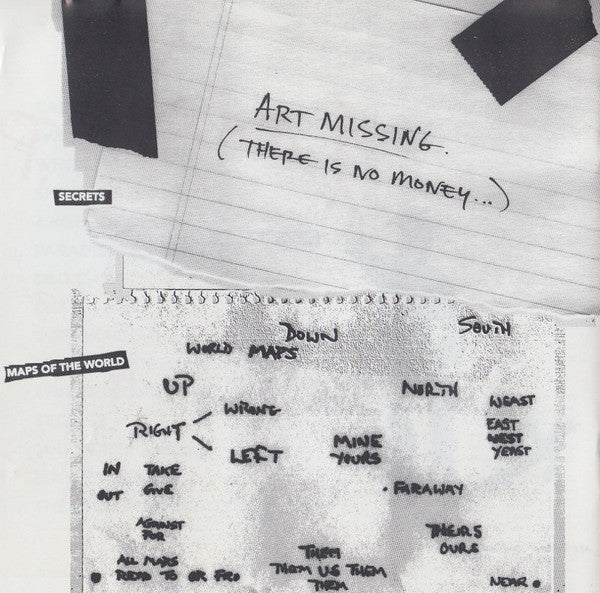 ART MISSING.
(THERE IS NO MONEY...)
SECRETS
DOWN
SOUTH
WORLD MAPS
MAPS OF THE WORLD
UP
NORTH
WRONG
WEAST
RIGHT
LEFT
MINE
YOURS
EAST
WEST
YEAST
IN TAKE
OUT GIVE
• FARAWAY
AGAINST
FOR
THEIRS
OURS
ALL MAPS
• READ TO OR FRO
THEM
THEM US THEM
THEM
NEAR •